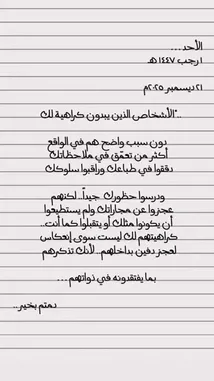 الأحد...
١ رجب ١٤٤٧ هـ
٢١ ديسمبر ٢٠٢٥م
..."الأشخاص الذين يبدون كراهية لك
دون سبب واضح هم في الواقع
أكثر من تعمّق في ملاحظاتك
دققوا في طباعك وراقبوا سلوكك
ودرسوا حظورك جيداً.. لكنهم
عجزوا عن مجاراتك ولم يستطيعوا
أن يكونوا مثلك أو يتقبلوا كما أنت..
كراهيتهم لك ليست سوى إنعكاس
لعجز دفين بداخلهم.. لأنك تذكرهم
بما يفتقدونه في ذواتهم...
دمتم بخير..